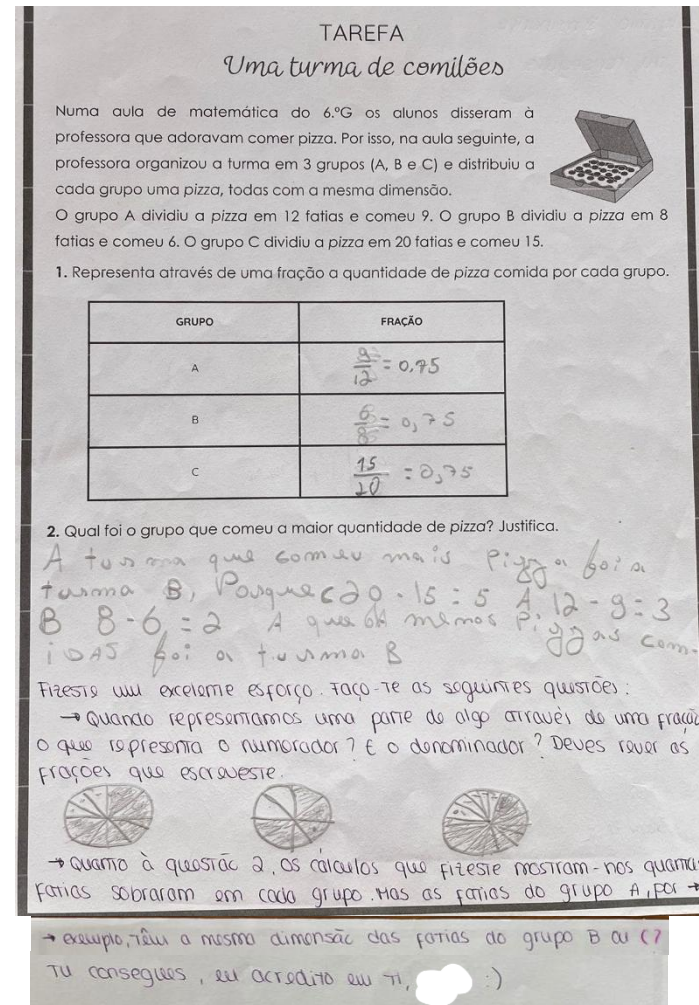 TAREFA
Uma turma de comilões
Numa aula de matemática do 6.ºG os alunos disseram à
professora que adoravam comer pizza. Por isso, na aula seguinte, a
professora organizou a turma em 3 grupos (A, B e C) e distribuiu a
cada grupo uma pizza, todas com a mesma dimensão.
O grupo A dividiu a pizza em 12 fatias e comeu 9. O grupo B dividiu a pizza em 8
fatias e comeu 6. O grupo C dividiu a pizza em 20 fatias e comeu 15.
1. Representa através de uma fração a quantidade de pizza comida por cada grupo.
GRUPO FRAÇÃO
A 9/12 = 0,75
B 6/8 = 0,75
C 15/20 = 0,75
2. Qual foi o grupo que comeu a maior quantidade de pizza? Justifica.
A turma que comeu mais pizza foi a
turma B, Porque C 20 - 15 = 5 A, 12 - 9 = 3
B 8 - 6 = 2 A que menos Pizzas com-
iDAS foi a turma B
Fizeste um excelente esforço. Faço-te as seguintes questões:
→ Quando representamos uma parte de algo através de uma fraçã
o que representa o numerador? E o denominador? Deves rever as
frações que escreveste.
→ Quanto à questão 2, os cálculos que fizeste mostram-nos quanta
fatias sobraram em cada grupo. Mas as fatias do grupo A, por →
→ exemplo, têm a mesma dimensão das fatias do grupo B ou C?
Tu consegues, eu acredito em ti, :)